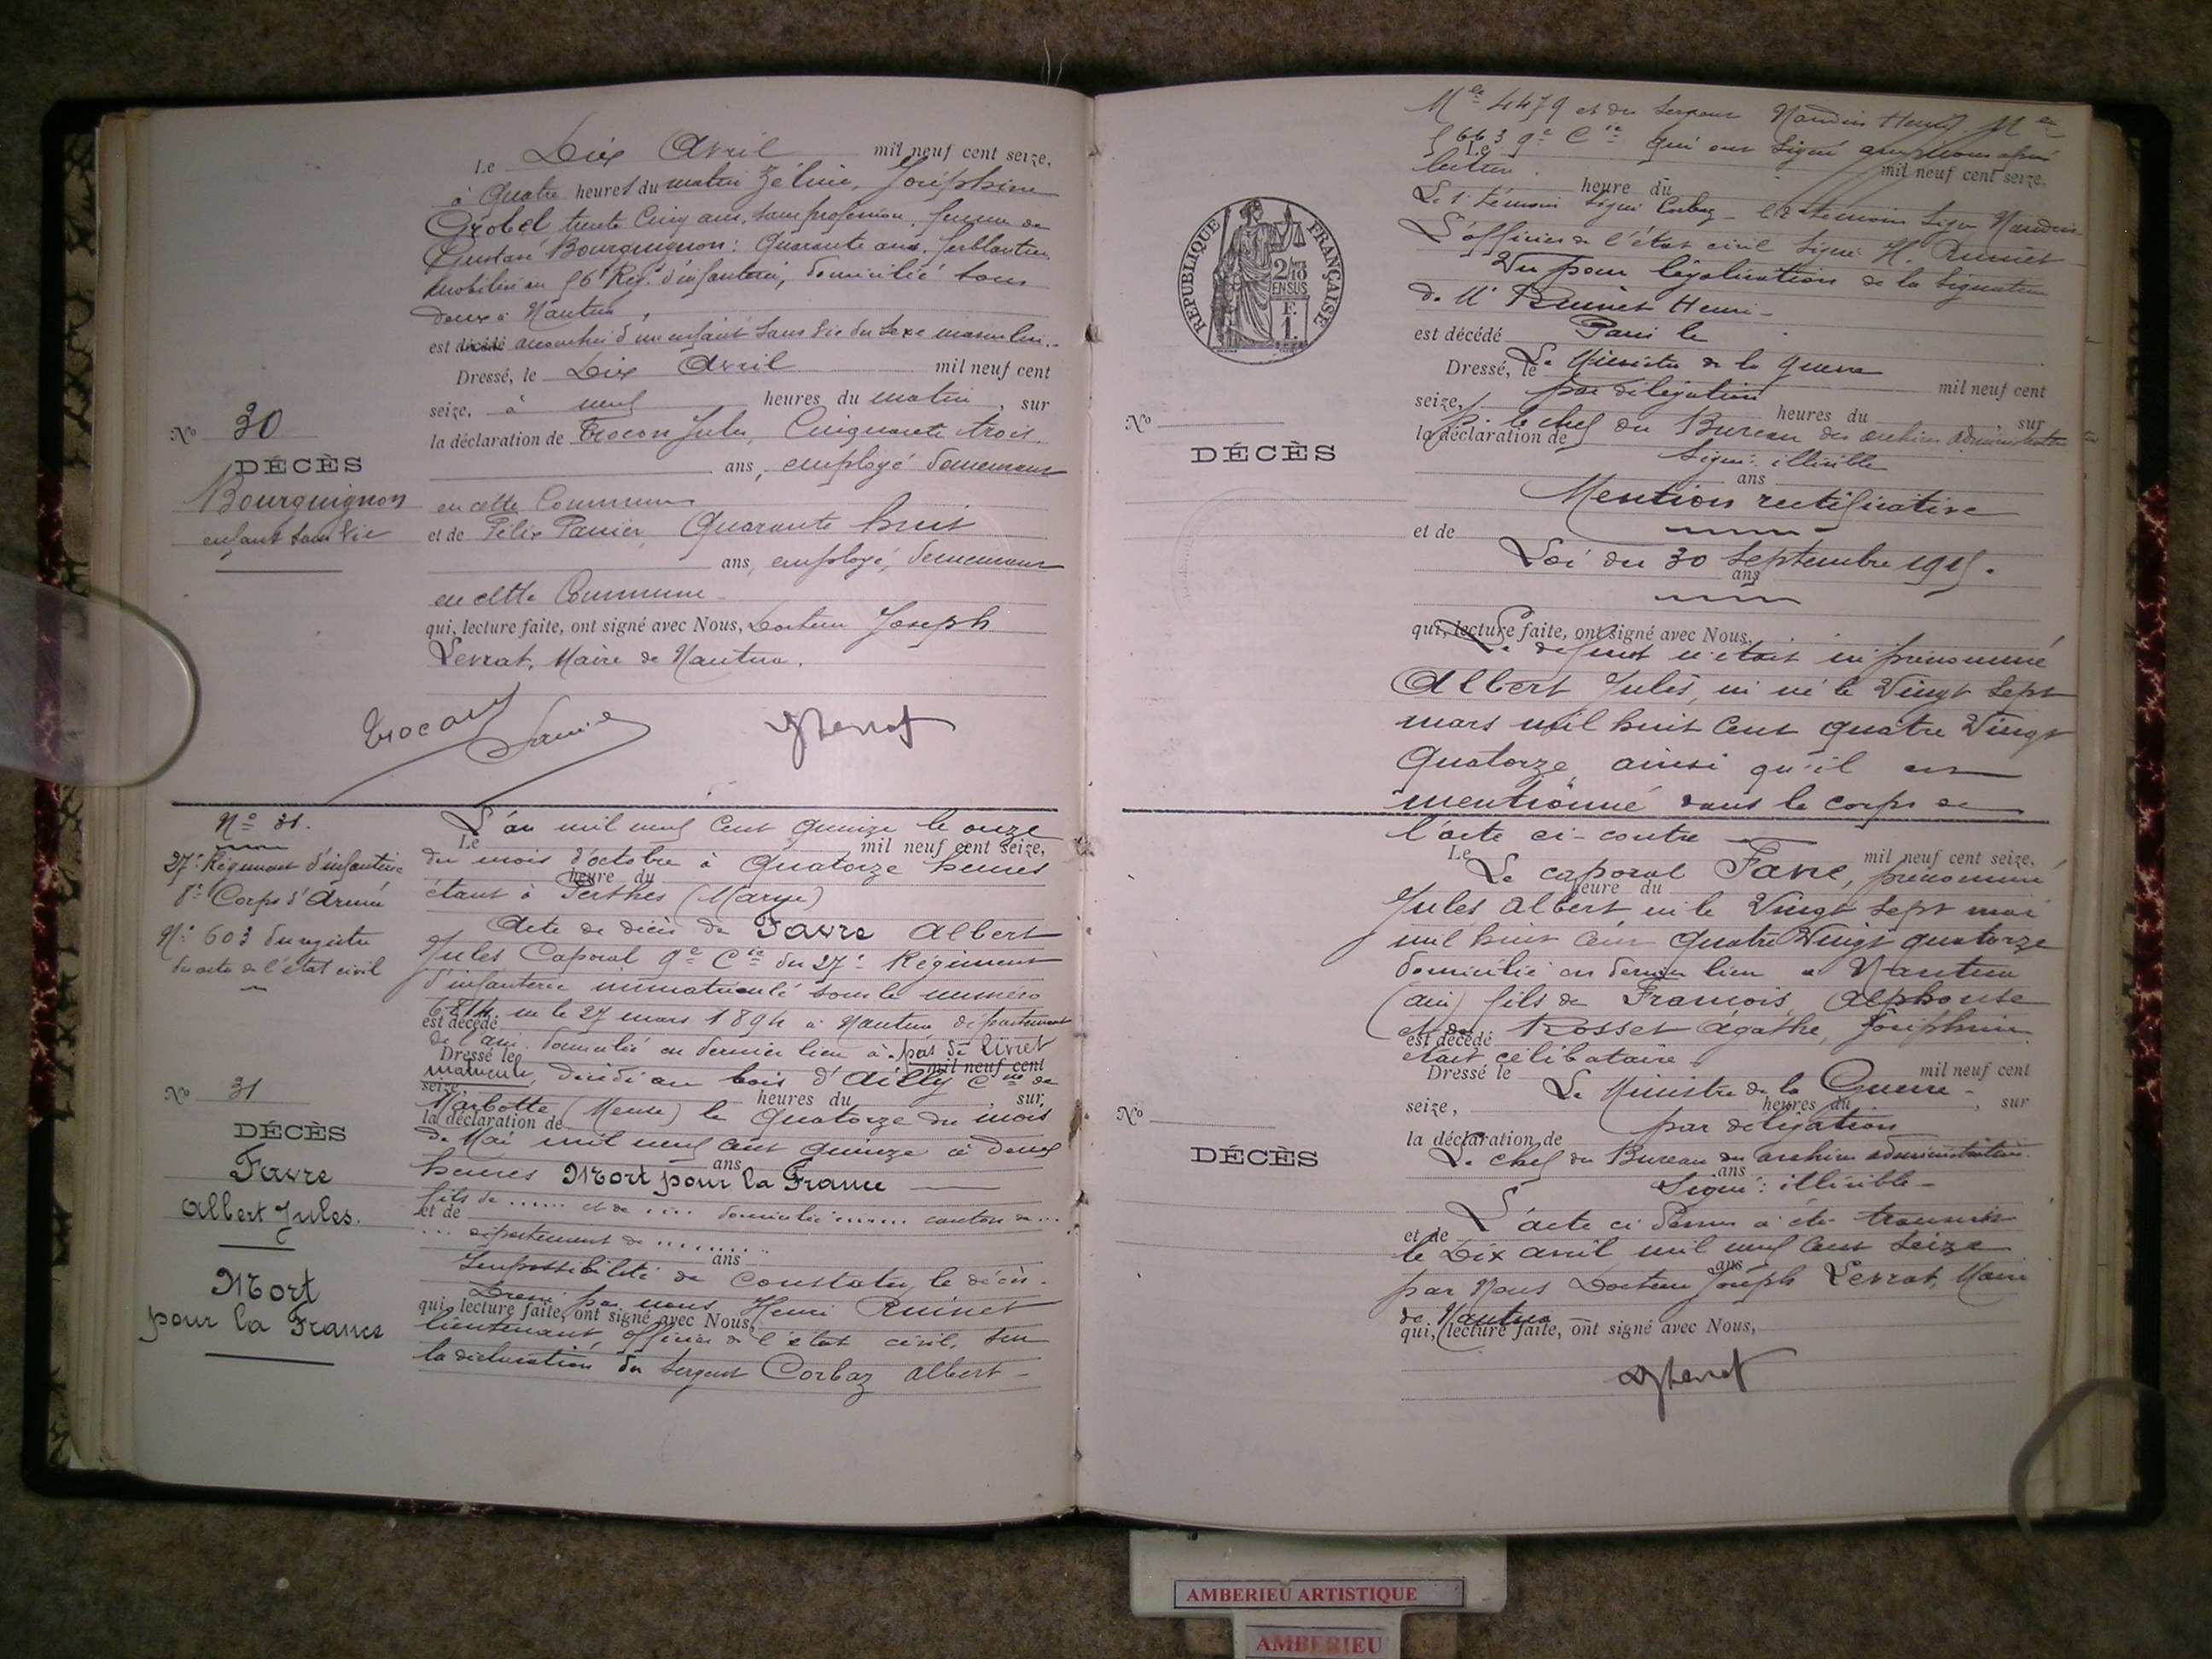 Le Dix Avril mil neuf cent seize,
à Quatre heures du matin Zélinie, Joséphine
Grobel trente Cinq ans, sans profession, femme de
Gustave Bourguignon: Quarante ans, ferblantier
mobilisé au 56e Rég. d'infanterie, domicilié tous
deux à Nantua,
est décédé accouchée d'un enfant sans vie du sexe masculin.
Dressé, le Dix Avril mil neuf cent
seize, à neuf heures du matin, sur
No 30
la déclaration de Trocon Jules, Cinquante trois
DÉCÈS
ans, employé demeurant
Bourguignon
en cette Commune
enfant sans vie
et de Félix Panier, Quarante huit
ans, employé, demeurant
en cette Commune
qui, lecture faite, ont signé avec Nous, Docteur Joseph
Levrat, Maire de Nantua.
Trocon
No 31.
27e Régiment d'infanterie
8e Corps d'Armée
No 603 du registre
des actes de l'état civil
No 31
DÉCÈS
Favre
Albert Jules.
Mort
pour la France
L'an mil neuf Cent quinze le onze
Le mil neuf cent seize,
du mois d'octobre à Quatorze heures
heure du
étant à Perthes (Marne)
Acte de décès de Favre Albert
Jules Caporal 9e Cie du 27e Régiment
d'infanterie immatriculé sous le numéro
né le 27 mars 1894 à Nantua département
est décédé
de l'Ain. domicilié en dernier lieu à. pas de livret
Dressé le mil neuf cent
matricule, décédé au bois d'Ailly Cne de
seize, heures du sur
Marbotte (Meuse) le Quatorze du mois
la déclaration de
de Mai mil neuf cent quinze à deux
ans
heures Mort pour la France
fils de ...... et de .... domicilié ...... canton de ...
et de
... département de ........
ans
Impossibilité de Constater le décès.
Dressé par nous Henri Ruinet
qui, lecture faite, ont signé avec Nous,
lieutenant, officier de l'état civil, sur
la déclaration du Sergent Corbaz Albert
Mle 4479 et du Sergent Naudin Henri Mle
5663 9e Cie qui ont signé avec nous après
Le mil neuf cent seize,
lecture.
heure du
Le 1er témoin signé Corbaz - le 2e témoin signé Naudin
L'officier de l'état civil signé H. Ruinet
Vu pour légalisation de la signature
de Mr Ruinet Henri -
REPUBLIQUE FRANÇAISE
2/10
EN SUS
F.
1.
est décédé Paris le
Dressé, le Le Ministre de la Guerre
mil neuf cent
par délégation
seize, heures du sur
No
P. le chef du Bureau des archives administratives
la déclaration de
DÉCÈS
Signé: illisible
ans
Mention rectificative
et de
Loi du 30 Septembre 1915.
ans
qui, lecture faite, ont signé avec Nous,
Le défunt n'était ni prénommé
Albert Jules, ni né le Vingt Sept
mars mil huit Cent Quatre Vingt
Quatorze, ainsi qu'il est
mentionné dans le corps de
l'acte ci-contre
Le mil neuf cent seize,
Le caporal Favre, prénommé
heure du
Jules Albert né le Vingt Sept mai
mil huit cent Quatre Vingt quatorze
domicilié en dernier lieu à Nantua
(Ain) fils de François, Alphonse
et de Rosset Agathe, Joséphine
est décédé
était célibataire
Dressé le mil neuf cent
Le Ministre de la Guerre -
seize, heures du, sur
No
par délégation
la déclaration de
Le chef du Bureau des archives administratives
DÉCÈS
ans
Signé: illisible -
L'acte ci dessus a été transcrit
et de
le Dix avril mil neuf Cent Seize
ans
par Nous Docteur Joseph Levrat, Maire
de Nantua
qui, lecture faite, ont signé avec Nous,
AMBERIEU ARTISTIQUE
AMBERIEU